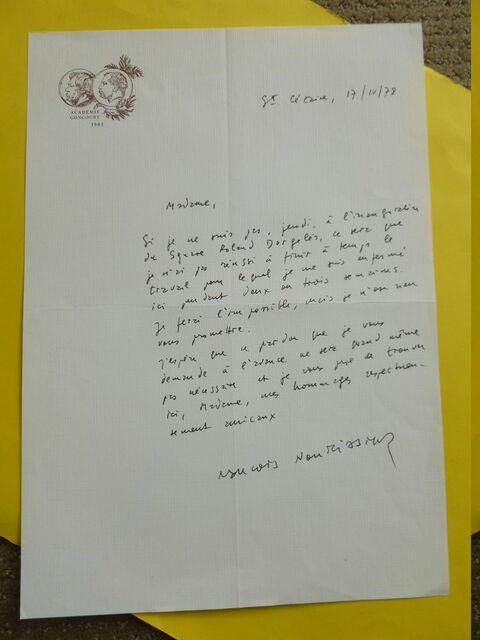 ACADEMIE
GONCOURT
1903
Ste Cécaire, 17/IV/78
Madame,
Si je ne suis pas, jeudi, à l'inauguration
du Square Roland Dorgelès, ce sera que
je n'ai pas réussi à finir à temps le
travail pour lequel je me suis enfermé
ici pendant deux ou trois semaines.
Je ferai l'impossible, mais je n'ose rien
vous promettre.
J'espère que ce pardon que je vous
demande à l'avance ne sera quand même
pas nécessaire et je vous prie de trouver
ici, Madame, mes hommages respectueu-
sement amicaux
François Nourissier